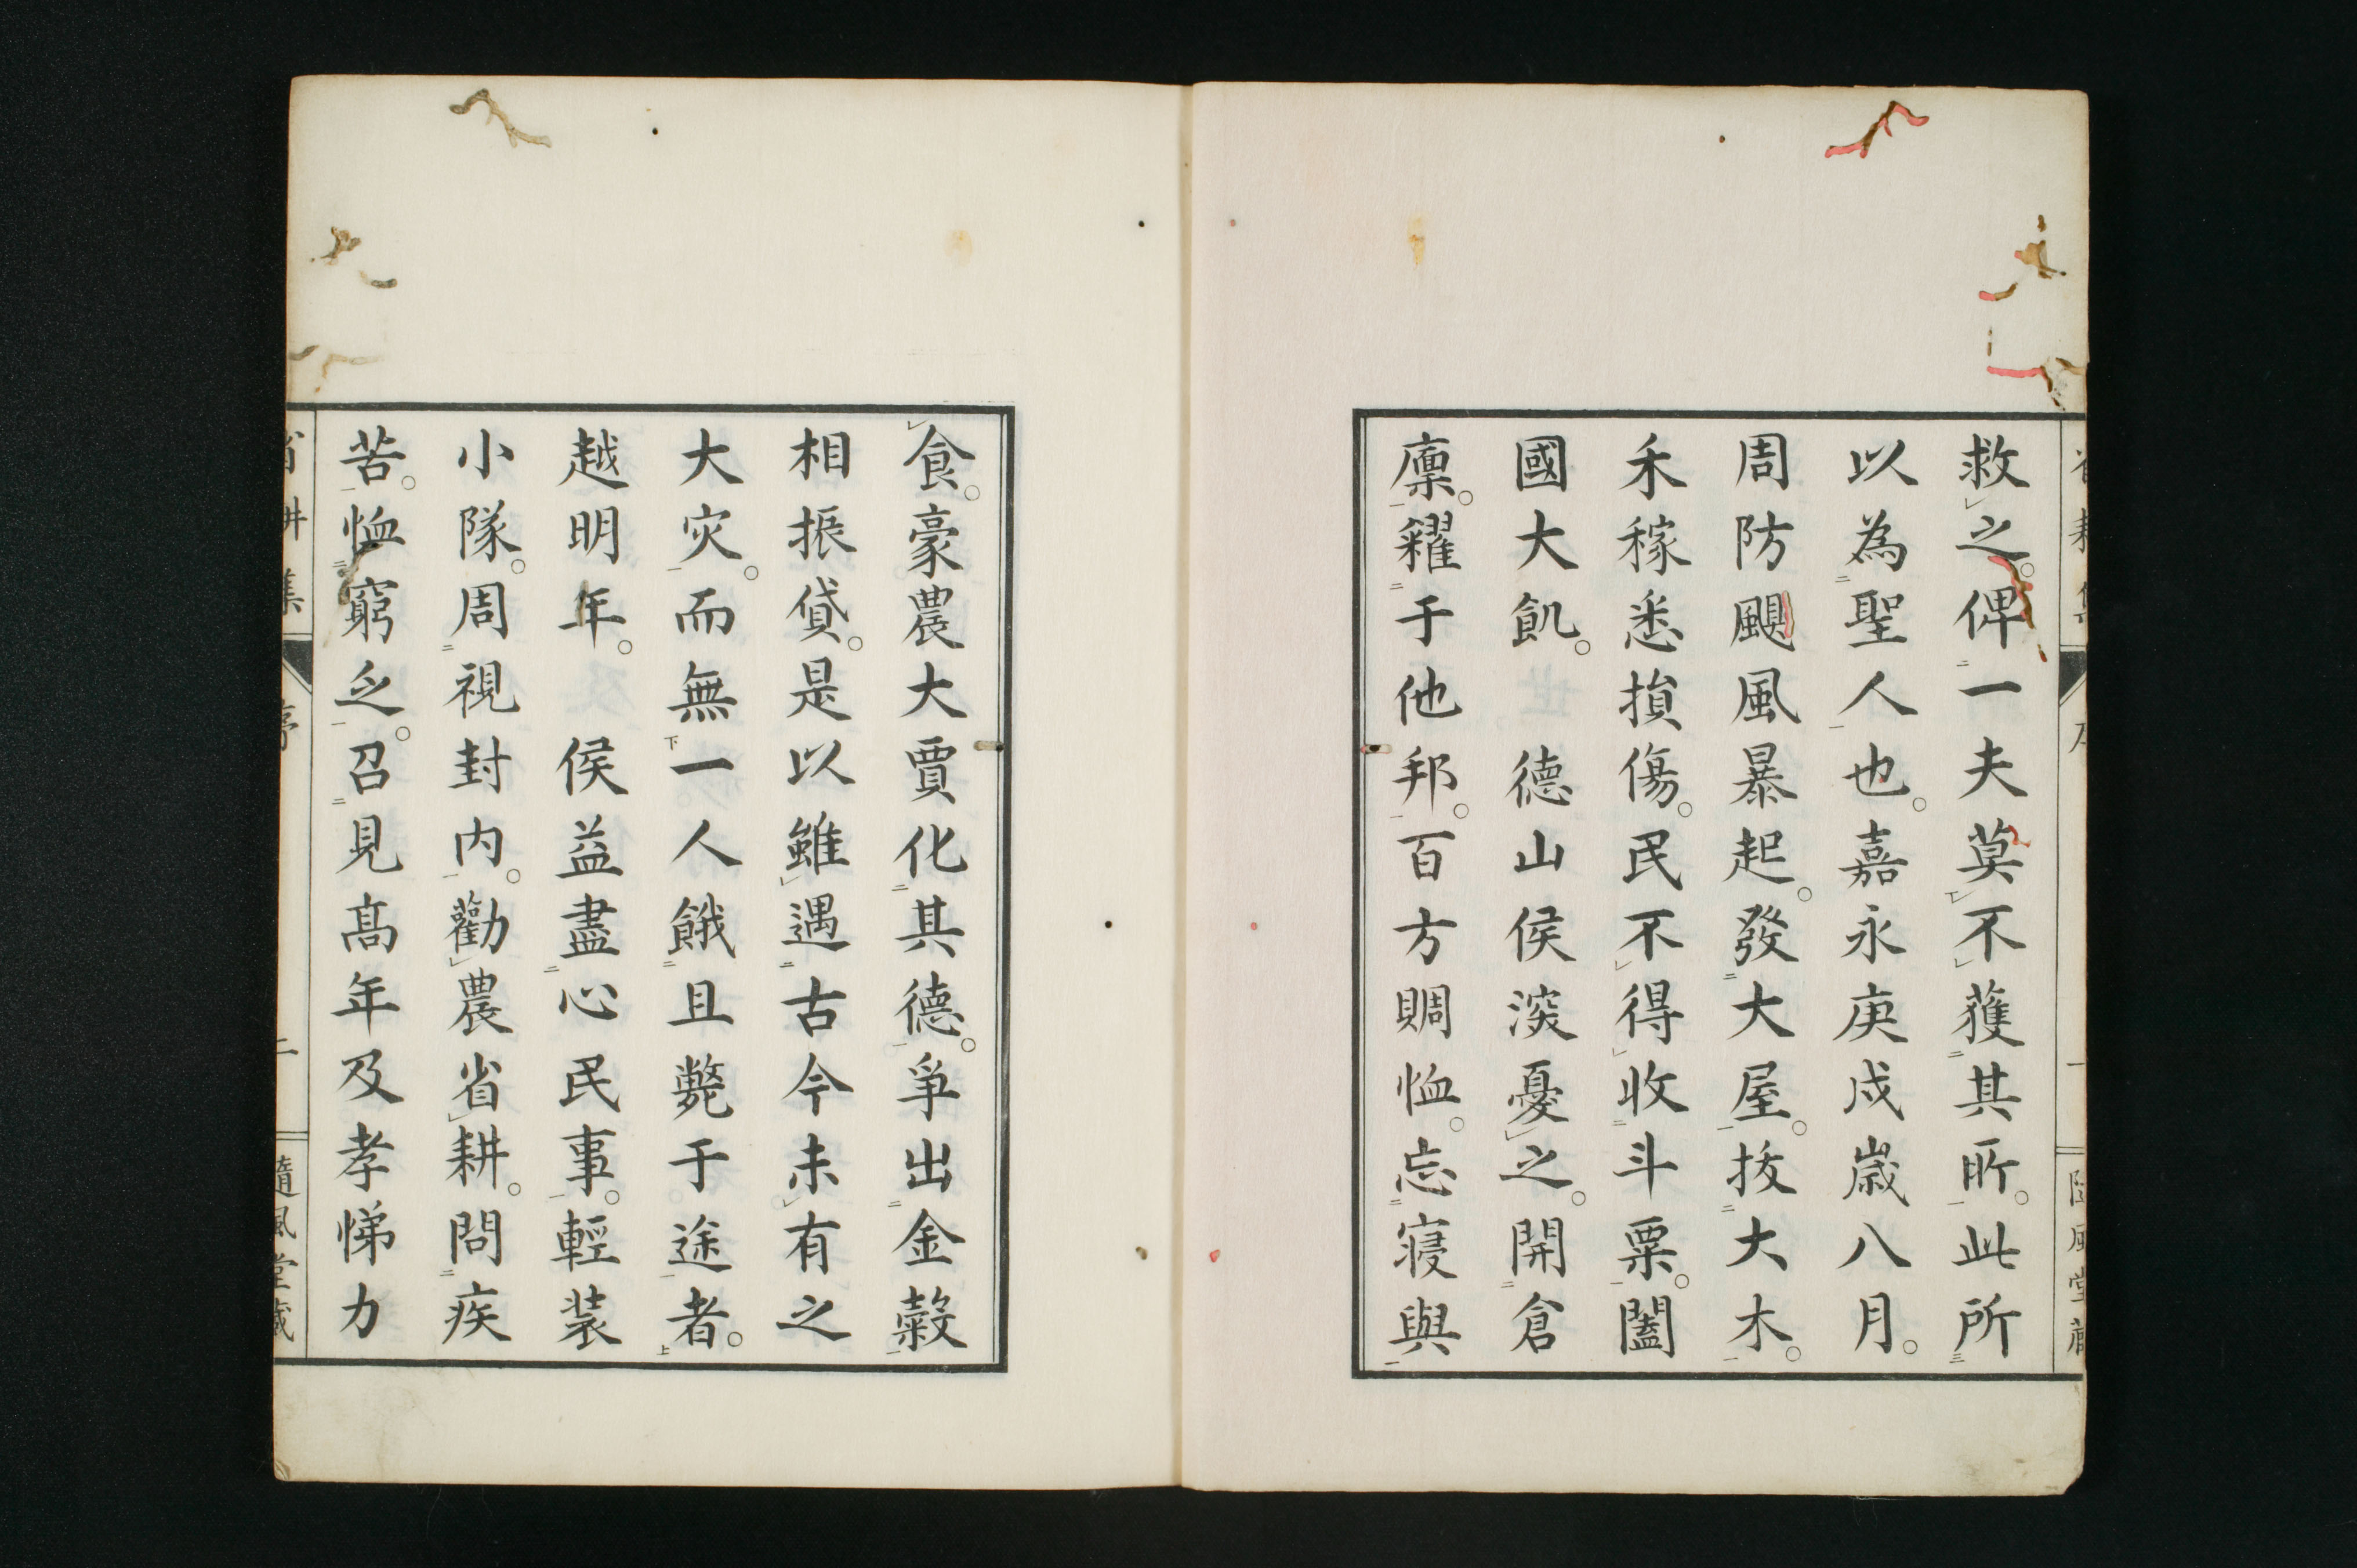 救之。俾一夫莫不獲其所。此所
以為聖人也。嘉永庚戌歳八月。
周防颶風暴起。發大屋。拔大木。
禾稼悉損傷。民不得收斗粟。闔
國大飢。　德山侯深憂之。開倉
廩。糴于他邦。百方賙恤。忘寢與
食。豪農大賈化其德。爭出金穀
相振貸。是以雖遇古今未有之
大灾。而無一人餓且斃于途者。
越明年。　侯益盡心民事。輕装
小隊。周視封内。勸農省耕。問疾
苦。恤窮乏。召見高年及孝悌力
省耕集
序
二
隨風堂藏